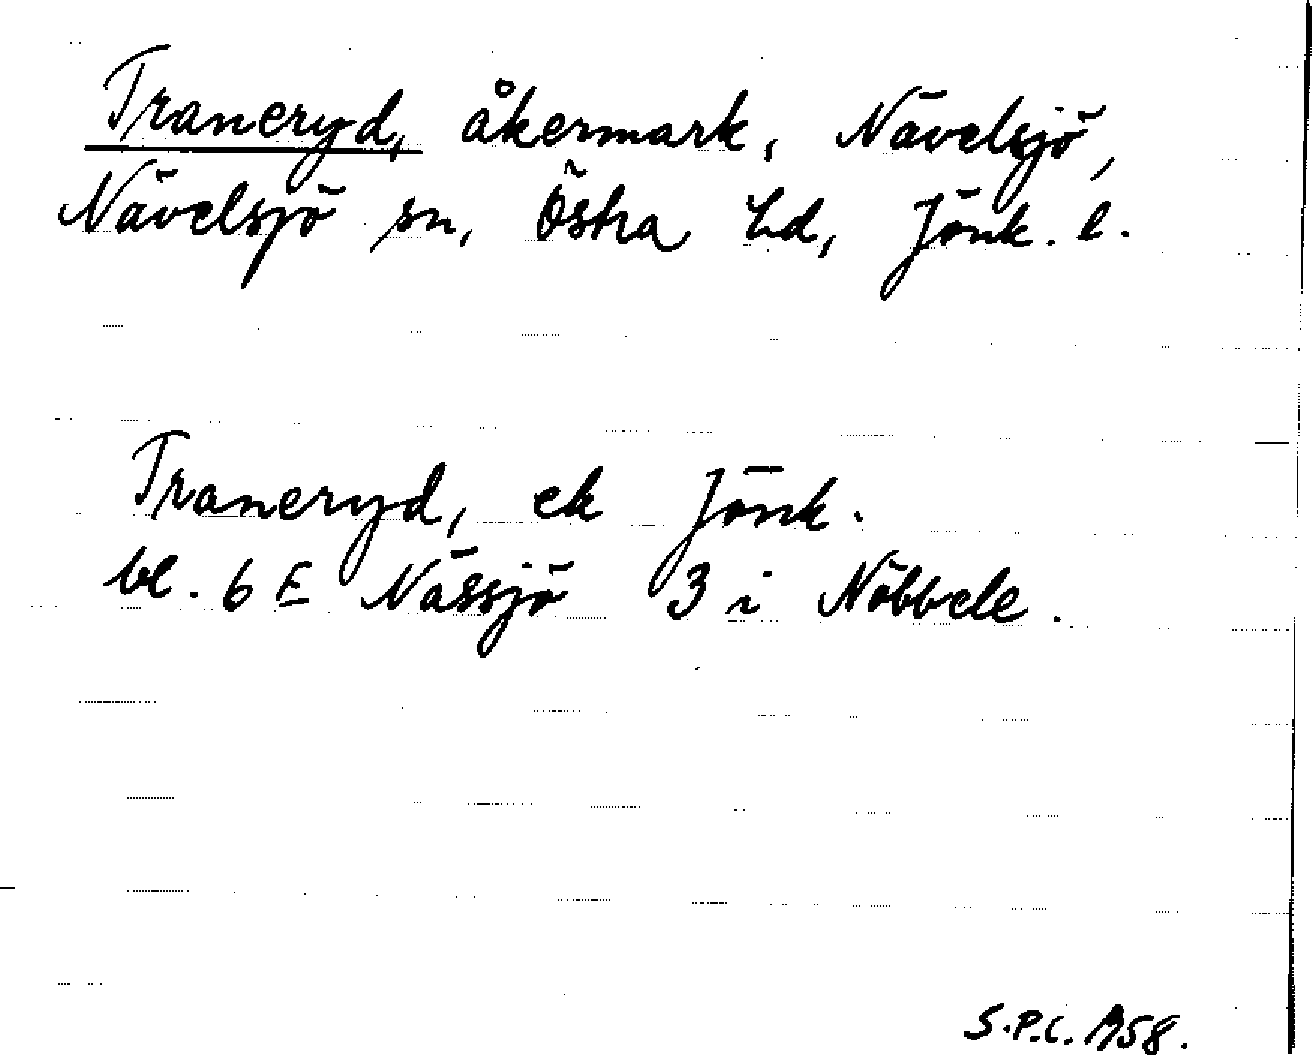 Traneryd, åkermark, Nävelsjö,
Nävelsjö sn, Östra hd, Jönk. l.
Traneryd, ek Jönk.
bl. 6 E Nässjö 3 i Nöbbele.
S.P.C. 1958.